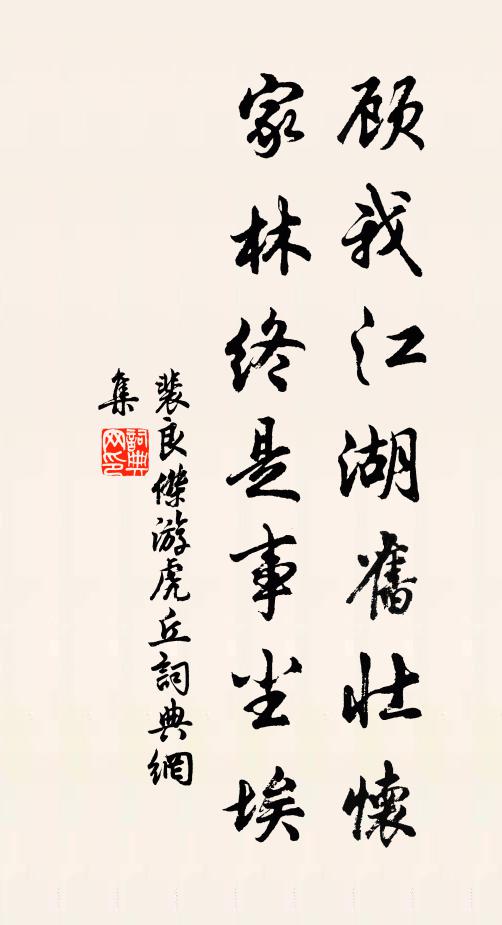 顾我江湖舊壮懷
家林终是事尘埃
裴良傑游虎丘詞典網
集
詞典
网印